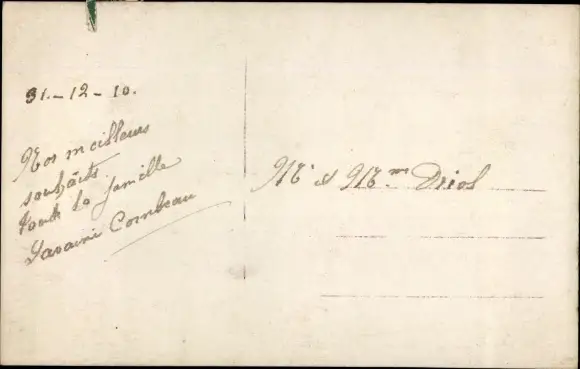 31.-12-10.
Nos meilleurs
souhaits
toute la famille
Cornbeau
Mr & Mme Driol